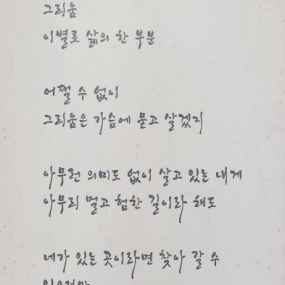 그리움
이별로 삶의 한 부분
어쩔 수 없이
그리움은 가슴에 묻고 살겠지
아무런 의미도 없이 살고 있는 내게
아무리 멀고 험한 길이라 해도
네가 있는 곳이라면 찾아 갈 수